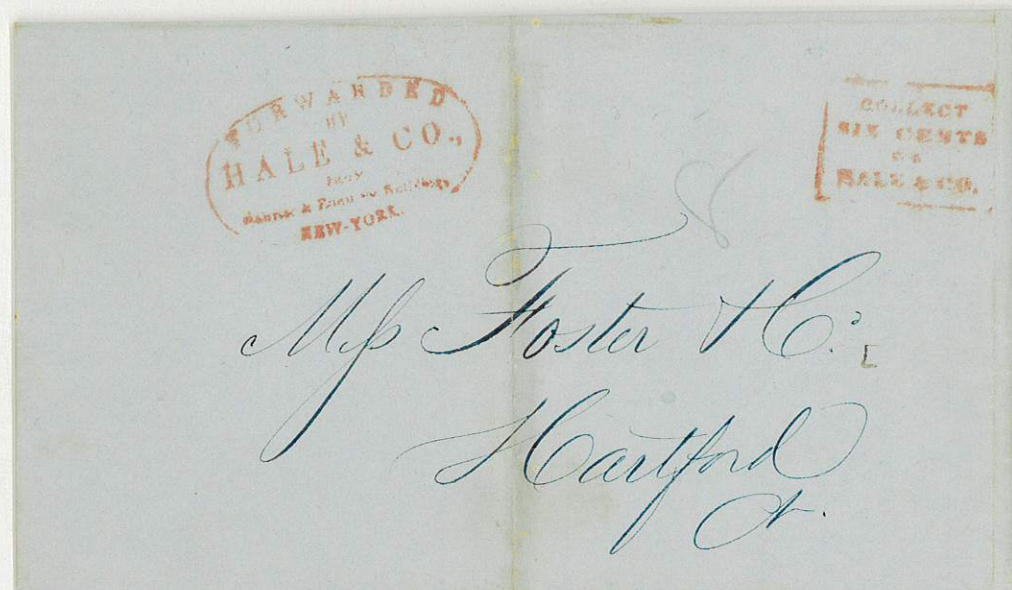 FORWARDED
BY
HALE & CO.,
FROM
NEW-YORK.
COLLECT
SIX CENTS
FOR
HALE & CO.
8
Mess Foster & Co:
Hartford
Ct.